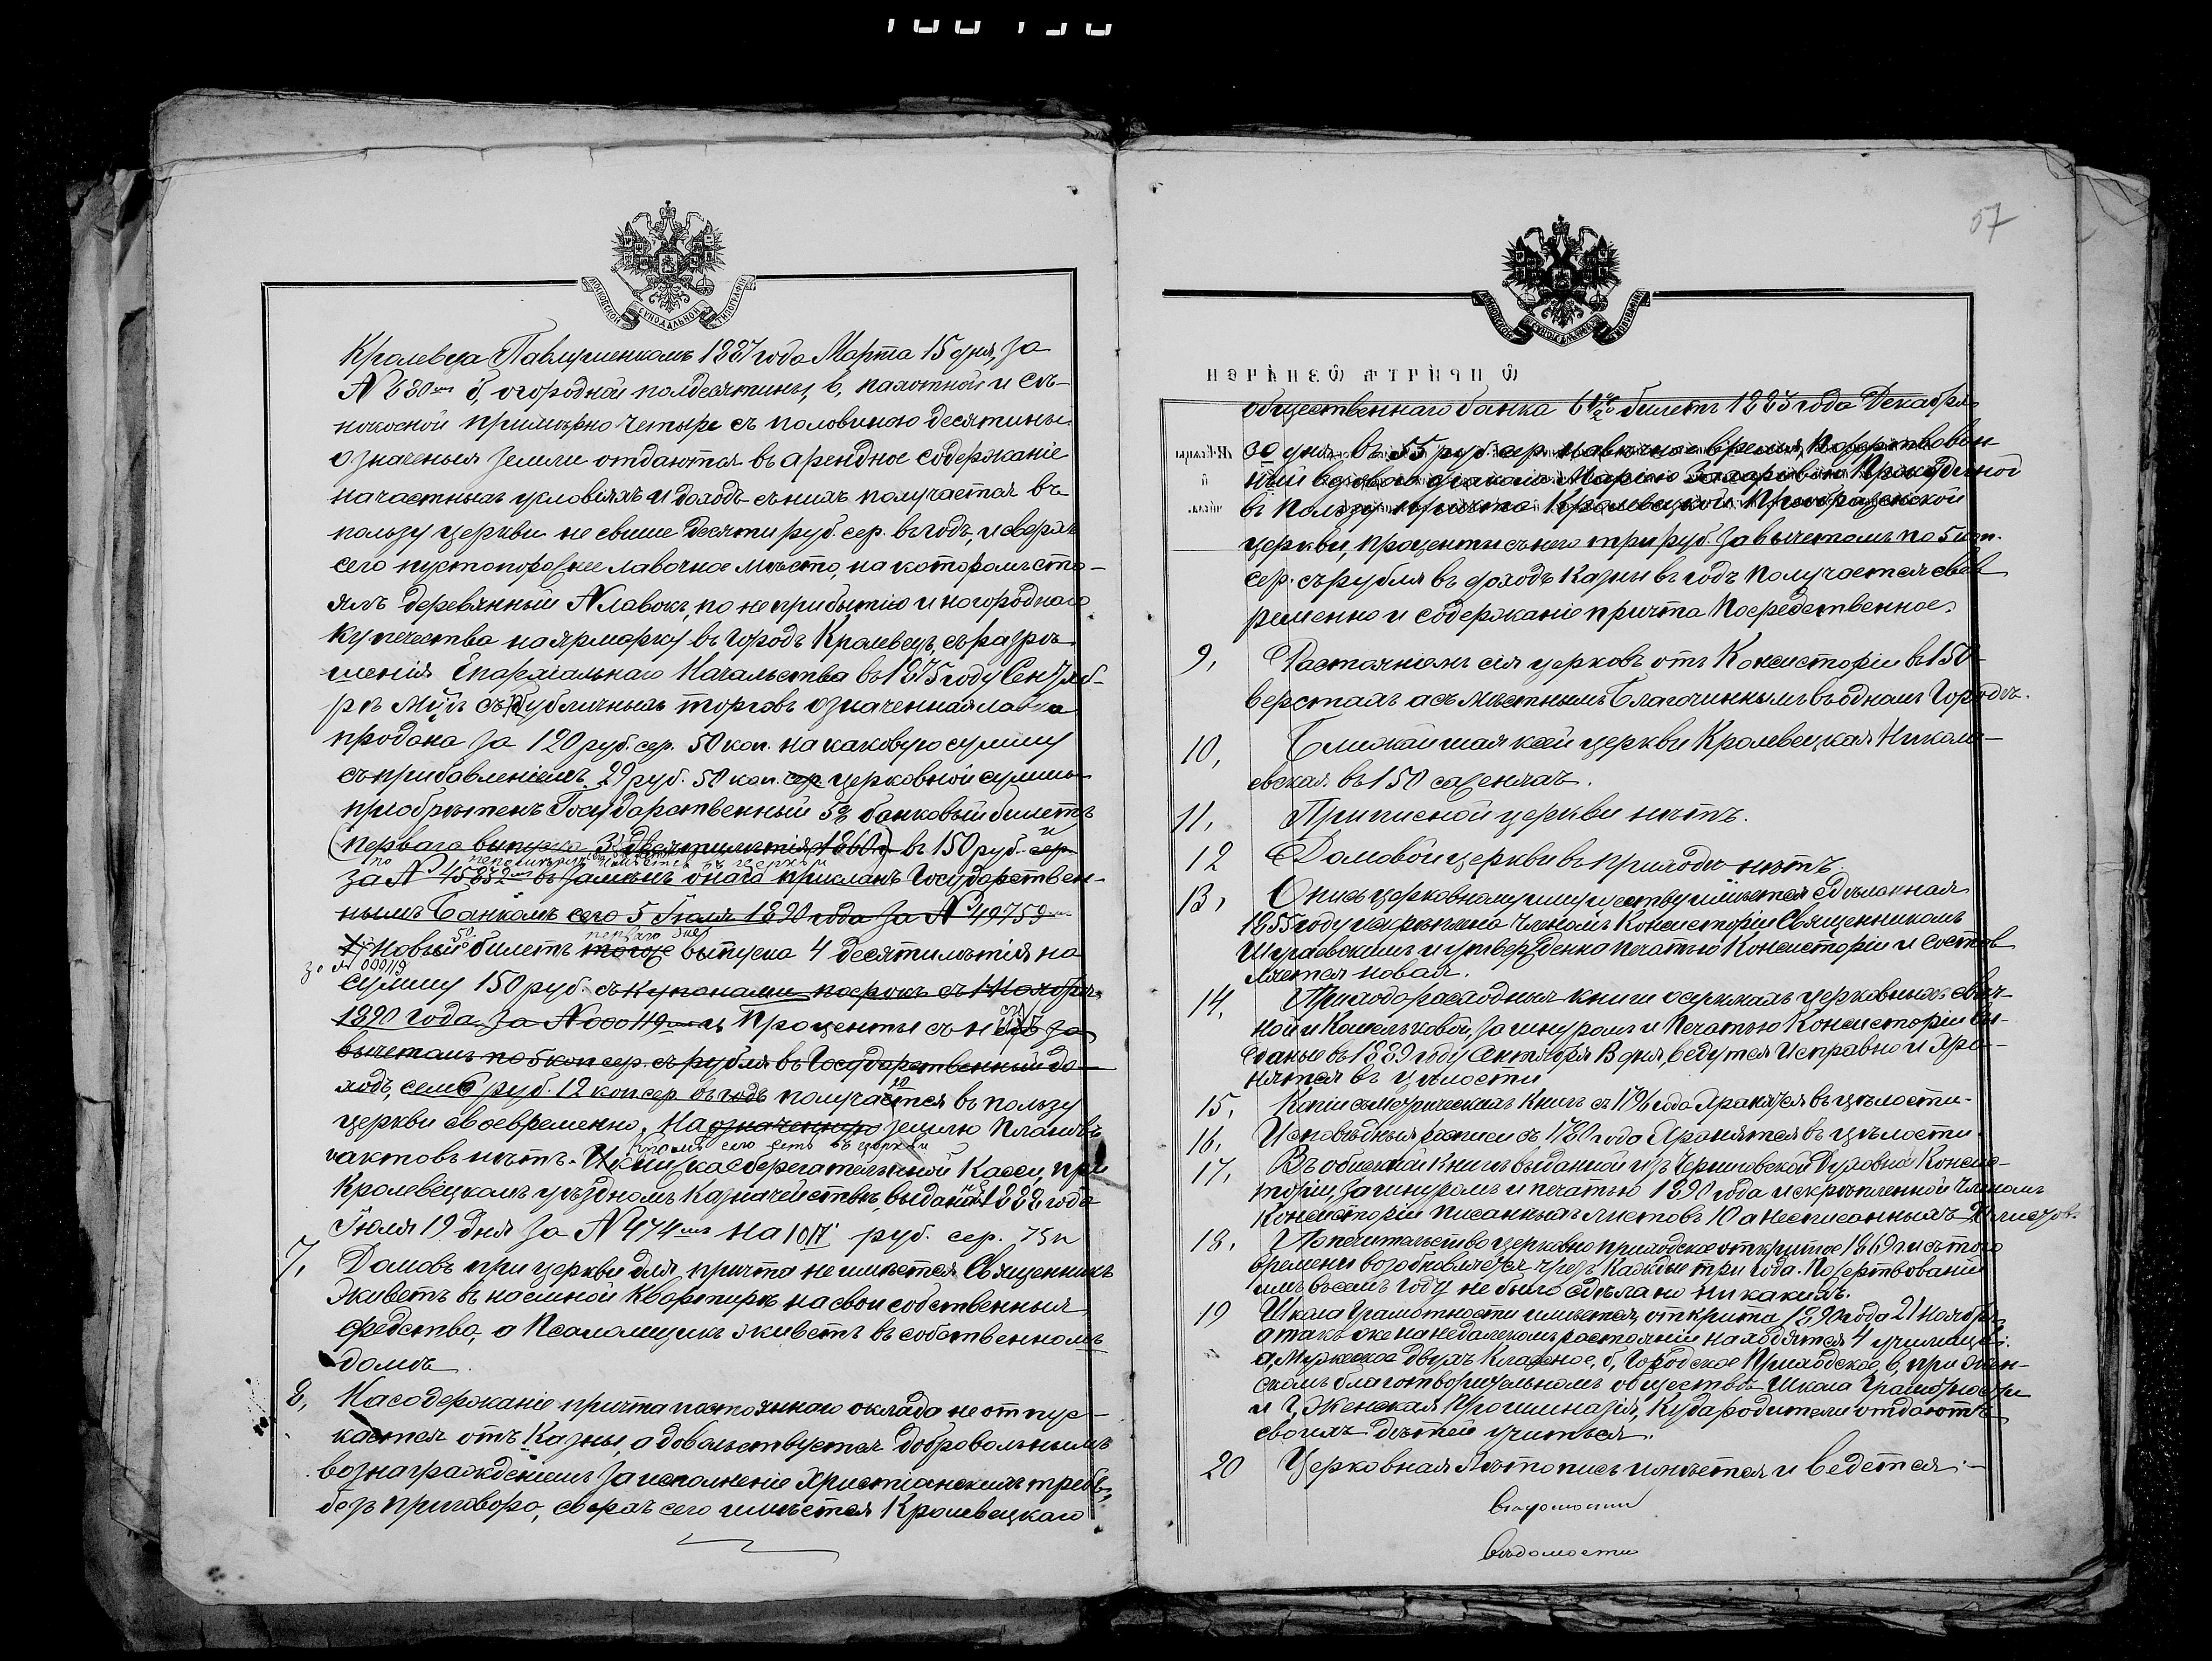 57
МОСКОВСКОЙ СѴНОДАЛЬНОЙ ТИПОГРАФІИ
Кролевца Павлушенкомъ 1887 года Марта 15 дня, за
№ 630мъ б, огородной полдесятины, в, пахотной и сѣ-
нокосной примѣрно четыре съ половиною десятины.
Означенныя земли отдаются въ арендное содержаніе
на частныхъ условіяхъ и доходъ съ нихъ получается въ
пользу церкви не свыше десяти руб. сер. въ годъ, и сверхъ
сего пустопорожнее лавочное мѣсто, на которомъ сто-
ялъ деревянный лавокъ, по не прибытію иногороднаго
купечества на ярмарку въ городъ Кролевецъ, съ разрѣ-
шенія Епархіальнаго Начальства въ 1875 году Сентяб-
ря съ публичныхъ торговъ означенная лавка
продана за 120 руб. сер. 50 коп. на каковую сумму
съ прибавленіемъ 29 руб. 50 коп. сер церковной суммы
пріобрѣтенъ Государственный 5% банковый билетъ
(перваго выпуска 3 десятилѣтія 1860) въ 150 руб. сер
за № 45832мъ въ замѣнъ онаго присланъ Государствен-
нымъ Банкомъ сего 5 Іюля 1890 года за № 49759мъ
новый билетъ тогоже выпуска 4 десятилѣтія на
за № 000119
сумму 150 руб. съ купонами на срокъ съ 1 Ноября
1890 года за № 000119мъ проценты съ него за
вычетомъ по 5 коп сер. съ рубля въ Государственный до-
ходъ, семь руб. 12 коп сер. въ годъ получается въ пользу
церкви своевременно. На означенную землю плановъ
и актовъ нѣтъ. Кромѣ сего есть въ церкви
Книжка сберегательной Кассы, при
Кролевецкомъ уѣздномъ Казначействѣ, выданная 1888 года
Іюля 19 дня за № 474мъ на 1017 руб. сер. 75 к
7, Домовъ при церкви для причта не имѣется Священникъ
живетъ въ наемной квартирѣ на свои собственныя
средства, а Псаломщикъ живетъ въ собственномъ
домѣ.
8, На содержаніе причта постояннаго оклада не отпус-
кается отъ Казны, а довольствуется добровольнымъ
вознагражденіемъ за исполненіе христіанскихъ требъ,
безъ приговора, сверхъ сего имѣется Кролевецкаго
общественнаго банка 6% билетъ 1883 года Декабря
30 дня въ 55 руб. сер. на вѣчное время, пожертвован-
ный вдовою діакона Маріею Захаровою
въ пользу причта Кролевецкой Преображенской
церкви, проценты съ него три руб. за вычетомъ по 5 коп.
сер. съ рубля въ доходъ казны въ годъ получается своев
ременно и содержаніе причта посредственное.
9, Растояніемъ сія церковь отъ Консисторіи въ 150
верстахъ а съ мѣстнымъ Благочиннымъ въ одномъ городѣ.
10, Ближайшая къ сей церкви Кролевецкая Никола-
евская въ 150 саженяхъ.
11, Приписной церкви нѣтъ.
12 Домовой церкви въ приходѣ нѣтъ.
13, Опись церковному имуществу имѣется сдѣланная
1855 году скрѣплена членомъ Консисторіи Священникомъ
и утверждена печатью Консисторіи и состав
ляется новая.
14, Приходорасходныя книги о суммахъ церковныхъ свѣч-
ной и кошельковой, за шнуромъ и печатью Консисторіи вы-
даны въ 1889 году Октября дня, ведутся исправно и хра-
нятся въ цѣлости
15, Копіи съ метрическихъ книгъ съ года хранятся въ цѣлости.
16, Исповѣдныя росписи съ 1780 года хранятся въ цѣлости
17, Въ обыскной книгѣ выданной изъ Черниговской Духовной Консис-
торіи, за шнуромъ и печатью 1890 года и скрѣпленной членомъ
Консисторіи писанныхъ листовъ 10 а неписанныхъ листовъ.
18, Попечительство церковно приходское открытое 1869 г. и съ того
времени возобновляется чрезъ каждые три года. Пожертвованій
имъ въ семъ году не было сдѣлано никакихъ.
19 Школа Грамотности имѣется, открыта 1890 года 21 Ноября,
а также на недалекомъ растояніи находятся 4 училища:
а, Мужеское двухъ классное, б, Городское Приходское, в, при Жен-
скомъ благотворительномъ обществѣ Школа грамотности
и г, Женская Прогимназія, куда родители отдаютъ
своихъ дѣтей учиться.
20 Церковная лѣтопись имѣется и ведется.
вѣдомости
вѣдомости